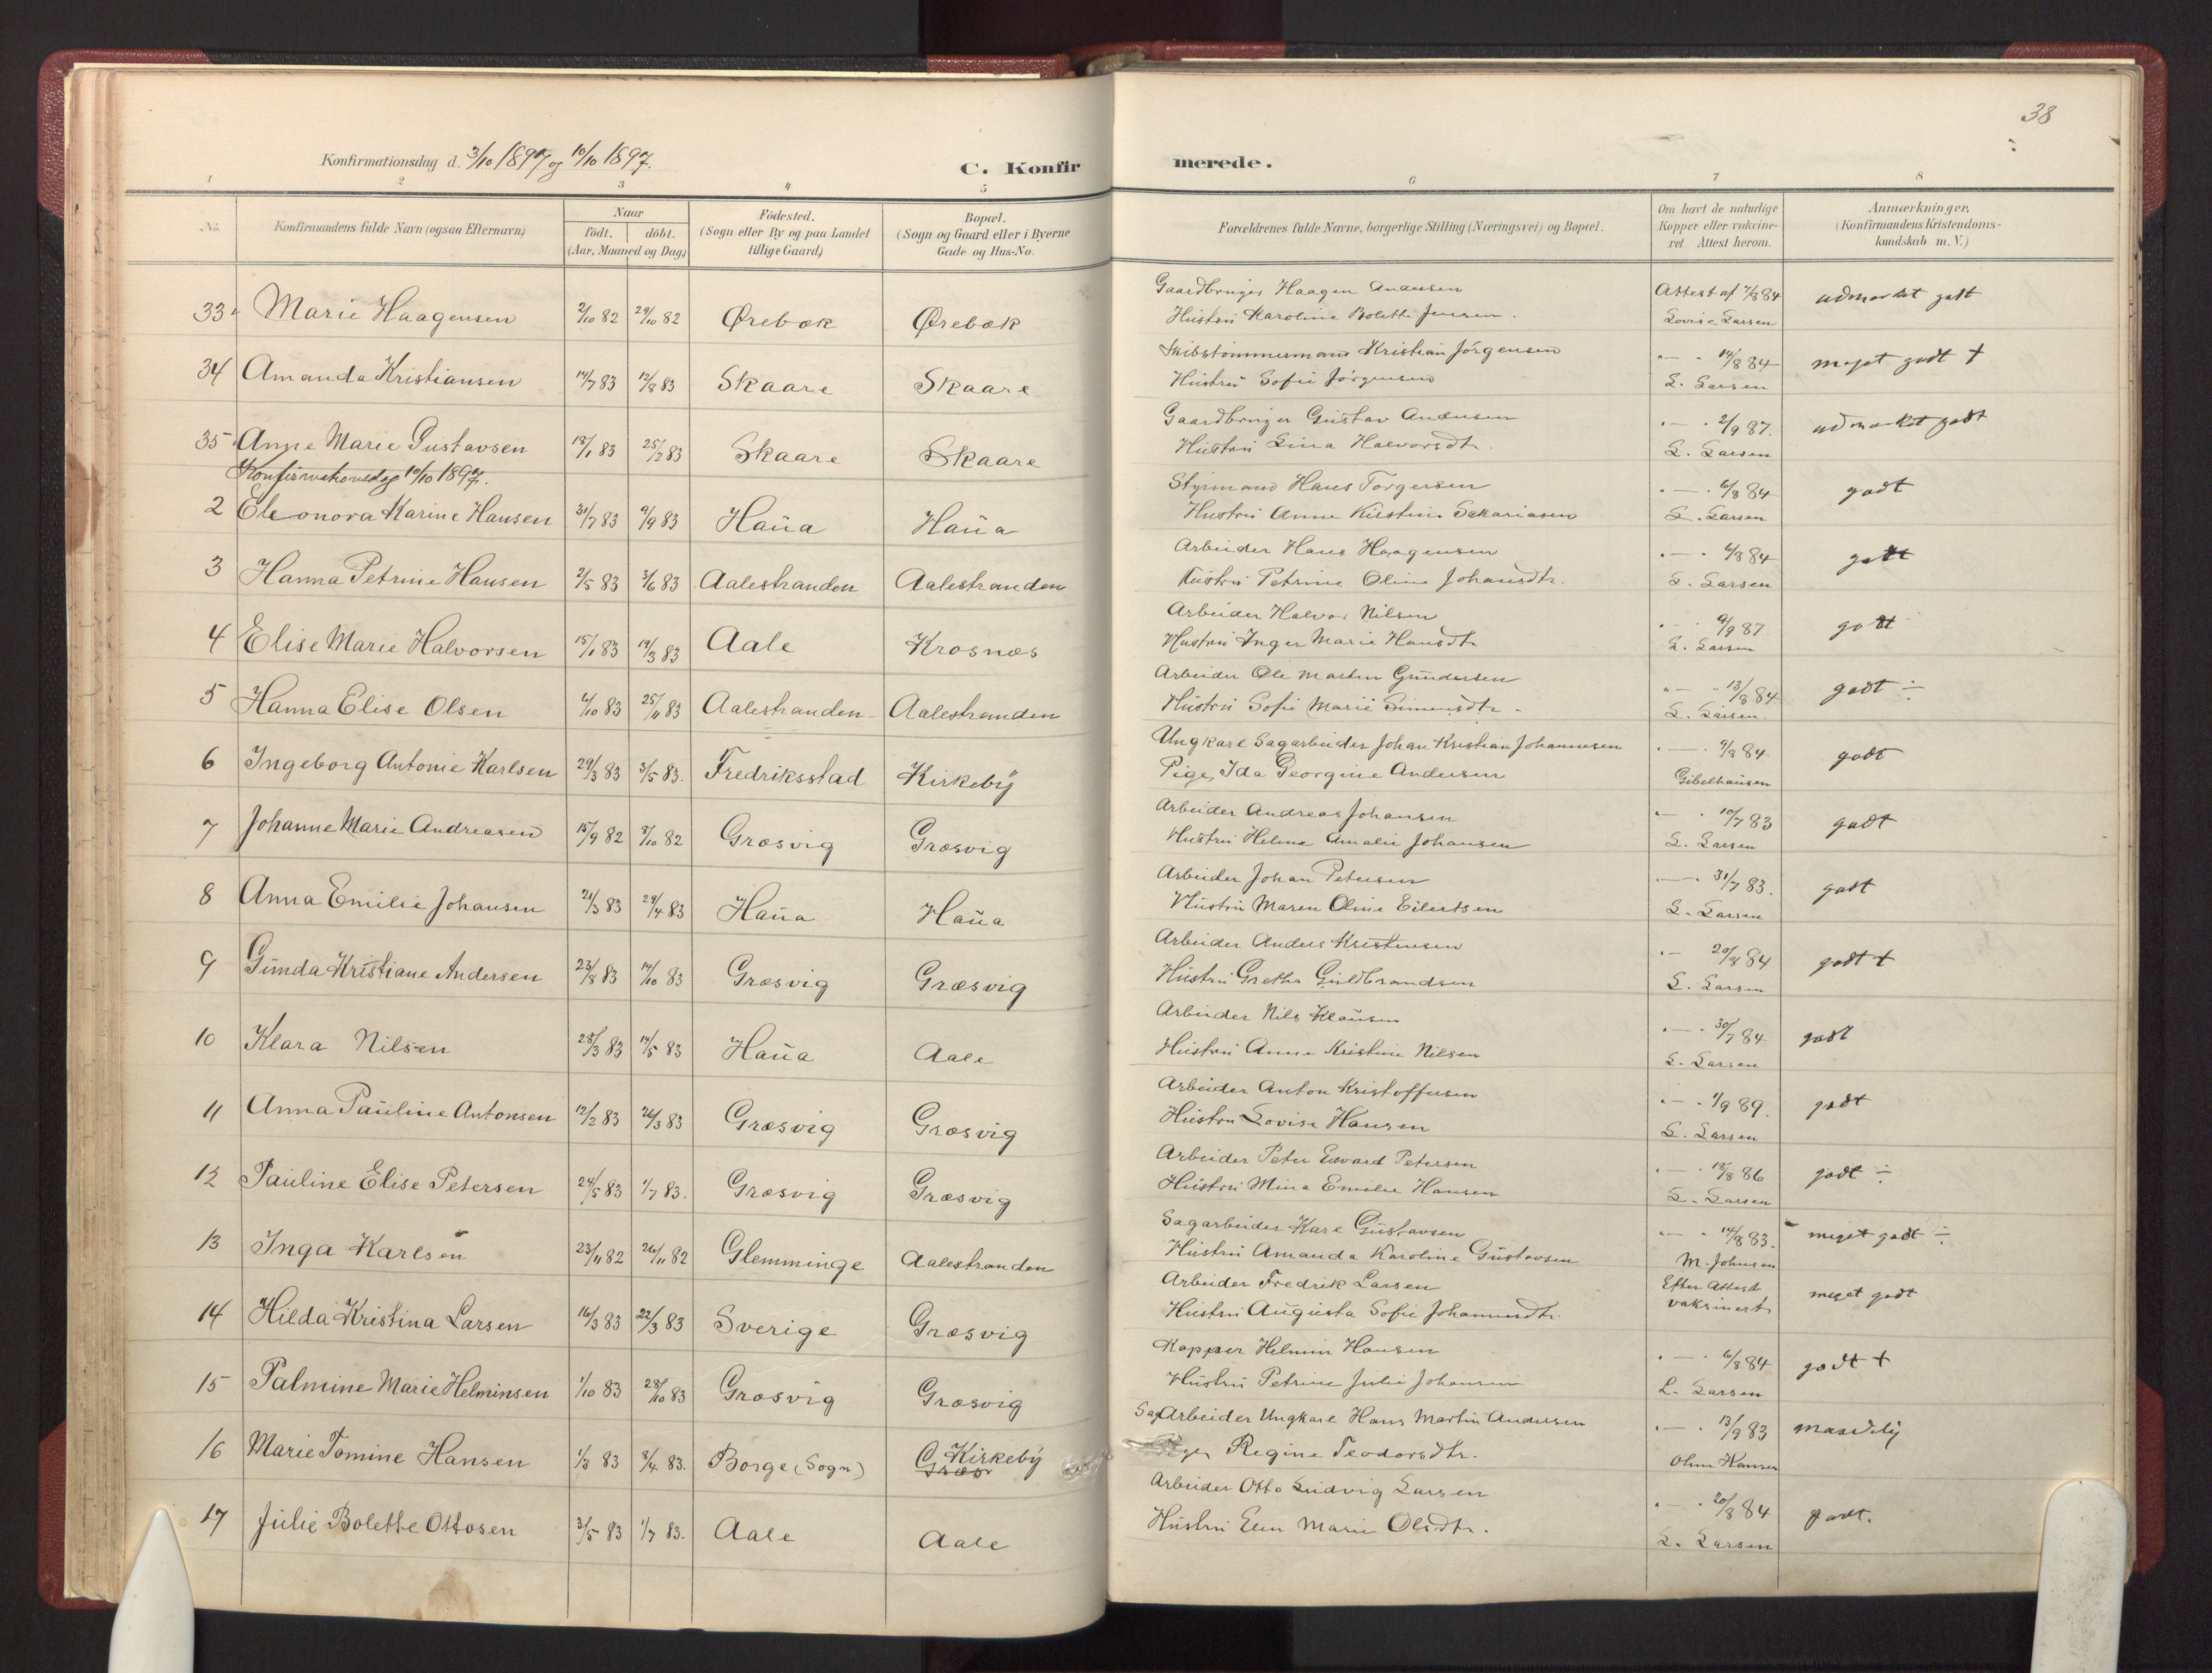 38
Konfirmationsdag d. 3/10 1897 og 10/10 1897.
C. Konfirmerede.
1 2 3 4 5 6 7 8
No. Konfirmandens fulde Navn (ogsaa Efternavn) Naar födt. döbt. (Aar, Maaned og Dag.) Födested. (Sogn eller By og paa Landet tillige Gaard) Bopæl. (Sogn og Gaard eller i Byerne Gade og Hus-No. Forældrenes fulde Navne, borgerlige Stilling (Næringsvei) og Bopæl. Om havt de naturlige Kopper eller vakcineret Attest herom. Anmærkninger, (Konfirmandens Kristendomskundskab m. V.)
33. Marie Haagensen 2/10 82 29/10 82 Ørebæk Ørebæk Gaardbruger Haagen Andersen Attest af 7/8 84 udmærket godt
Hustru Karoline Bolette Jensen. Lovise Larsen
34 Amanda Kristiansen 14/7 83 12/8 83 Skaare Skaare Skibstømmermand Kristian Jörgensen " — " 14/8 84 meget godt +
Hustru Sofie Jörgensen L. Larsen
35 Anne Marie Gustavsen 18/1 83 25/2 83 Skaare Skaare Gaardbruger Gustav Andersen " — " 2/9 87. udmærket godt
Hustru Lina Halvorsdtr. L. Larsen
Konfirmationsdag 10/10 1897.
2 Eleonora Karine Hansen 31/7 83 9/9 83 Haua Haua Styrmand Hans Torgersen " — " 6/8 84 godt
Hustru Anne Kirstine Sakariasen L. Larsen
3 Hanna Petrine Hansen 2/5 83 3/6 83 Aalestranden Aalestranden Arbeider Hans Haagensen " — " 6/8 84 godt
Hustru Petrine Oline Johansdtr. L. Larsen
4 Elise Marie Halvorsen 15/1 83 19/3 83 Aale Krosnæs Arbeider Halvor Nilsen " — " 9/9 87 godt
Hustru Inger Marie Hansdtr L. Larsen
5 Hanna Elise Olsen 4/10 83 25/11 83 Aalestranden Aalestranden Arbeider Ole Martin Gundersen " — " 13/8 84 godt ÷
Hustru Sofie Marie Simensdtr. L. Larsen.
6 Ingeborg Antonie Karlsen 29/3 83 3/5 83. Fredriksstad Kirkeby Ungkarl Sagarbeider Johan Kristian Johannesen " — " 9/8 84 godt
Pige, Ida Georgine Andersen Gibelhausen
7 Johanne Marie Andreasen 15/9 82 8/10 82 Græsvig Græsvig Arbeider Andreas Johansen " — " 10/7 83 godt
Hustru Helene Amalie Johansen L. Larsen
8 Anna Emilie Johansen 21/3 83 29/4 83 Haua Haua Arbeider Johan Petersen " — " 31/7 83. godt
Hustru Maren Oline Eilertsen L. Larsen
9 Gunda Kristiane Andersen 23/8 83 14/10 83 Græsvig Græsvig Arbeider Anders Kristensen " — 20/8 84 godt +
Hustru Grethe Guldbrandsen L. Larsen
10 Klara Nilsen 28/3 83 14/5 83 Haua Aale Arbeider Nils Klausen " — " 30/7 84 godt
Hustru Anne Kristine Nilsen L. Larsen
11 Anna Pauline Antonsen 12/2 83 26/3 83 Græsvig Græsvig Arbeider Anton Kristoffersen " — " 1/9 89. godt
Hustru Lovise Hansen L. Larsen
12 Pauline Elise Petersen 24/5 83 1/7 83. Græsvig Græsvig Arbeider Peter Edvard Petersen " — " 18/8 86 godt ÷
Hustru Mina Emilie Hansen L. Larsen
13 Inga Karlsen 23/11 82 26/11 82 Glemminge Aalestranden Sagarbeider Karl Gustavsen " — " 14/8 83. meget godt ÷
Hustru Amanda Karoline Gustavsen M. Johnsen
14 Hilda Kristina Larsen 16/3 83 22/3 83 Sverige Græsvig Arbeider Fredrik Larsen Efter Attest meget godt
Hustru Augusta Sofie Johannesdtr. vaksinert
15 Palmine Marie Helminsen 1/10 83 28/10 83 Græsvig Græsvig Kapper Helmin Hansen " — " 6/8 84 godt +
Hustru Petrine Julie Johansen L. Larsen
16 Marie Tomine Hansen 1/3 83 8/4 83. Borge (Sogn) Kirkeby Græsv SagArbeider Ungkarl Hans Martin Andersen " — " 13/9 83 maadelig
Regine Teodorsdtr. Oline Hansen
17 Julie Bolette Ottosen 3/5 83 1/7 83. Aale Aale Arbeider Otto Ludvig Larsen " — " 20/8 84 godt.
Hustru Elen Marie Olsdtr. L. Larsen